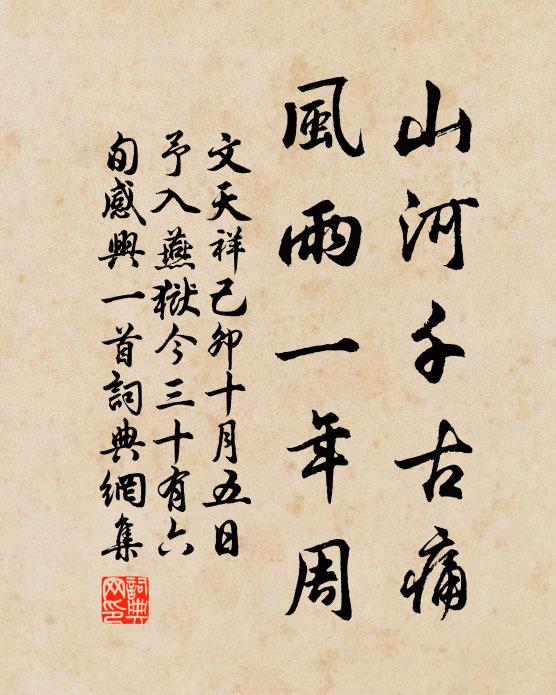 山河千古痛
風雨一年周
文天祥己卯十月五日
予入燕獄今三十有六
旬感興一首詞典網集
詞典
网印